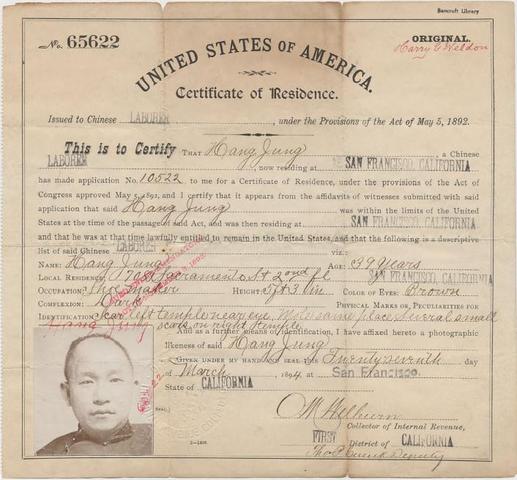 Bancroft Library
No. 65622
ORIGINAL.
Harry E Weldon
UNITED STATES OF AMERICA.
Certificate of Residence.
Issued to Chinese LABORER, under the Provisions of the Act of May 5, 1892.
This is to Certify THAT Hang Jung, a Chinese
LABORER now residing at SAN FRANCISCO, CALIFORNIA
has made application No. 10522 to me for a Certificate of Residence, under the provisions of the Act of
Congress approved May 5, 1892, and I certify that it appears from the affidavits of witnesses submitted with said
application that said Hang Jung was within the limits of the United
States at the time of the passage of said Act, and was then residing at SAN FRANCISCO, CALIFORNIA
and that he was at that time lawfully entitled to remain in the United States, and that the following is a descriptive
list of said Chinese LABORER
NAME: Hang Jung AGE: 39 Years
LOCAL RESIDENCE: 708 Sacramento St 2nd fl SAN FRANCISCO, CALIFORNIA
OCCUPATION: Shoemaker HEIGHT: 5 ft 3 in COLOR OF EYES: Brown
COMPLEXION: Dark PHYSICAL MARKS OR PECULIARITIES FOR
IDENTIFICATION: Scar left temple near eye, Mole same place, Several small
scars on right temple
Hang Jung
And as a further means of identification, I have affixed hereto a photographic
likeness of said Hang Jung
GIVEN UNDER MY HAND AND SEAL this Twenty seventh day
of March, 1894, at San Francisco,
State of CALIFORNIA
[SEAL.]
O M Welburn
Collector of Internal Revenue,
FIRST District of CALIFORNIA
Deputy